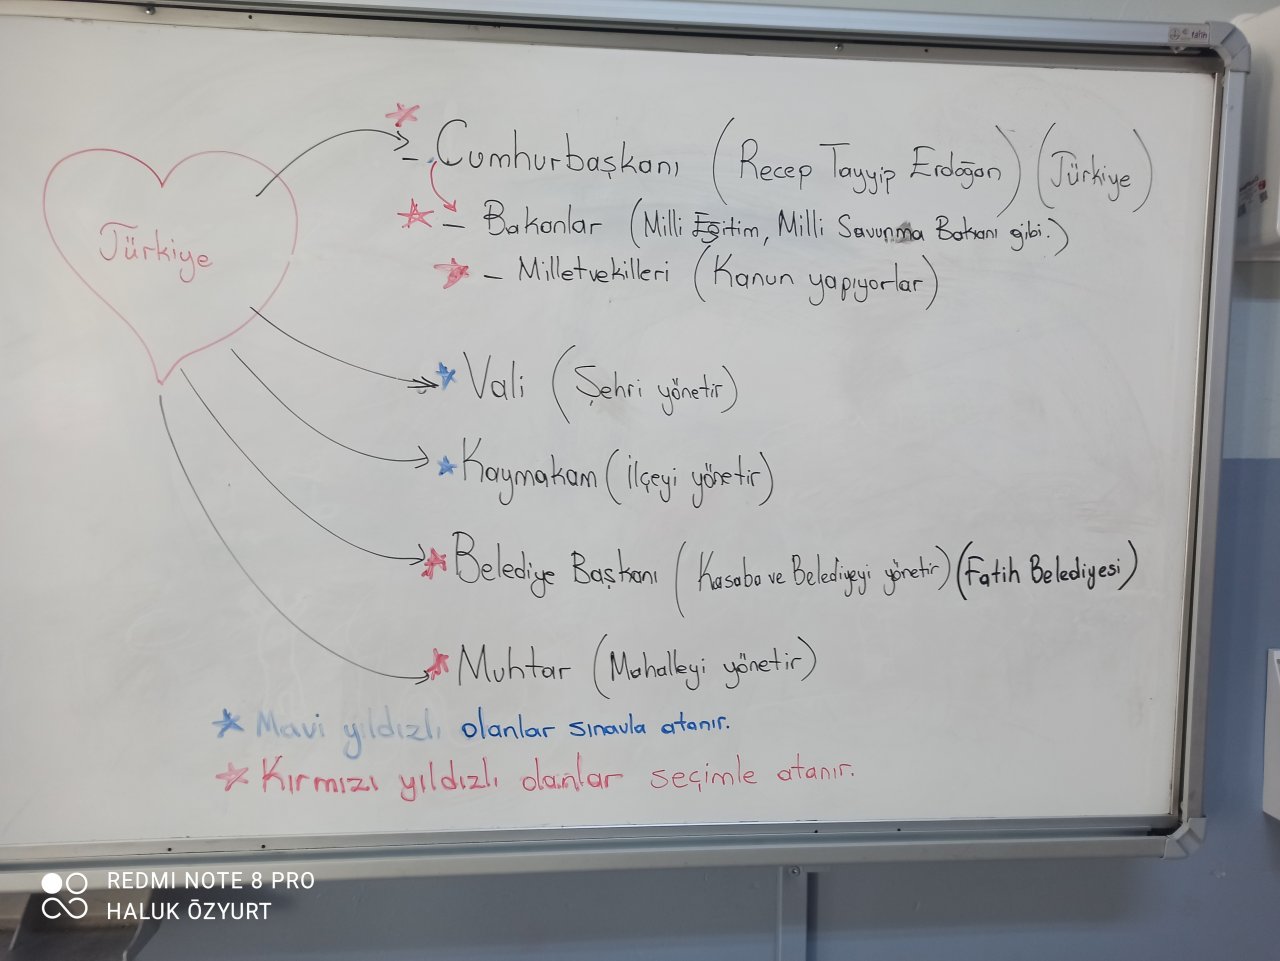 Türkiye
- Cumhurbaşkanı (Recep Tayyip Erdoğan) (Türkiye)
- Bakanlar (Milli Eğitim, Milli Savunma Bakanı gibi.)
- Milletvekilleri (Kanun yapıyorlar)
Vali (Şehri yönetir)
Kaymakam (İlçeyi yönetir)
Belediye Başkanı (Kasaba ve Belediyeyi yönetir) (Fatih Belediyesi)
Muhtar (Mahalleyi yönetir)
Mavi yıldızlı olanlar sınavla atanır.
Kırmızı yıldızlı olanlar seçimle atanır.
fatih
REDMI NOTE 8 PRO
HALUK ÖZYURT